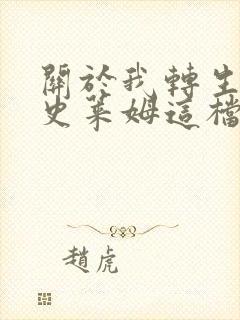 關於我轉生
史萊姆這檔
趙虎